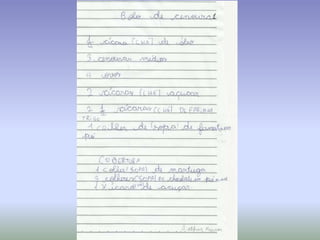 Bolo de cenoura
1/2 xícara (CHÁ) de óleo
3 cenouras médias
4 ovos
2 xícaras (CHÁ) açúcar
2 1/2 xícaras (CHÁ) DE FARINHA
TRIGO
1 colher de (sopa) de fermento
pó
COBERTURA
1 colher (SOPA) de manteiga
3 colheres (SOPA) de chocolate em pó
1 xícara de açúcar